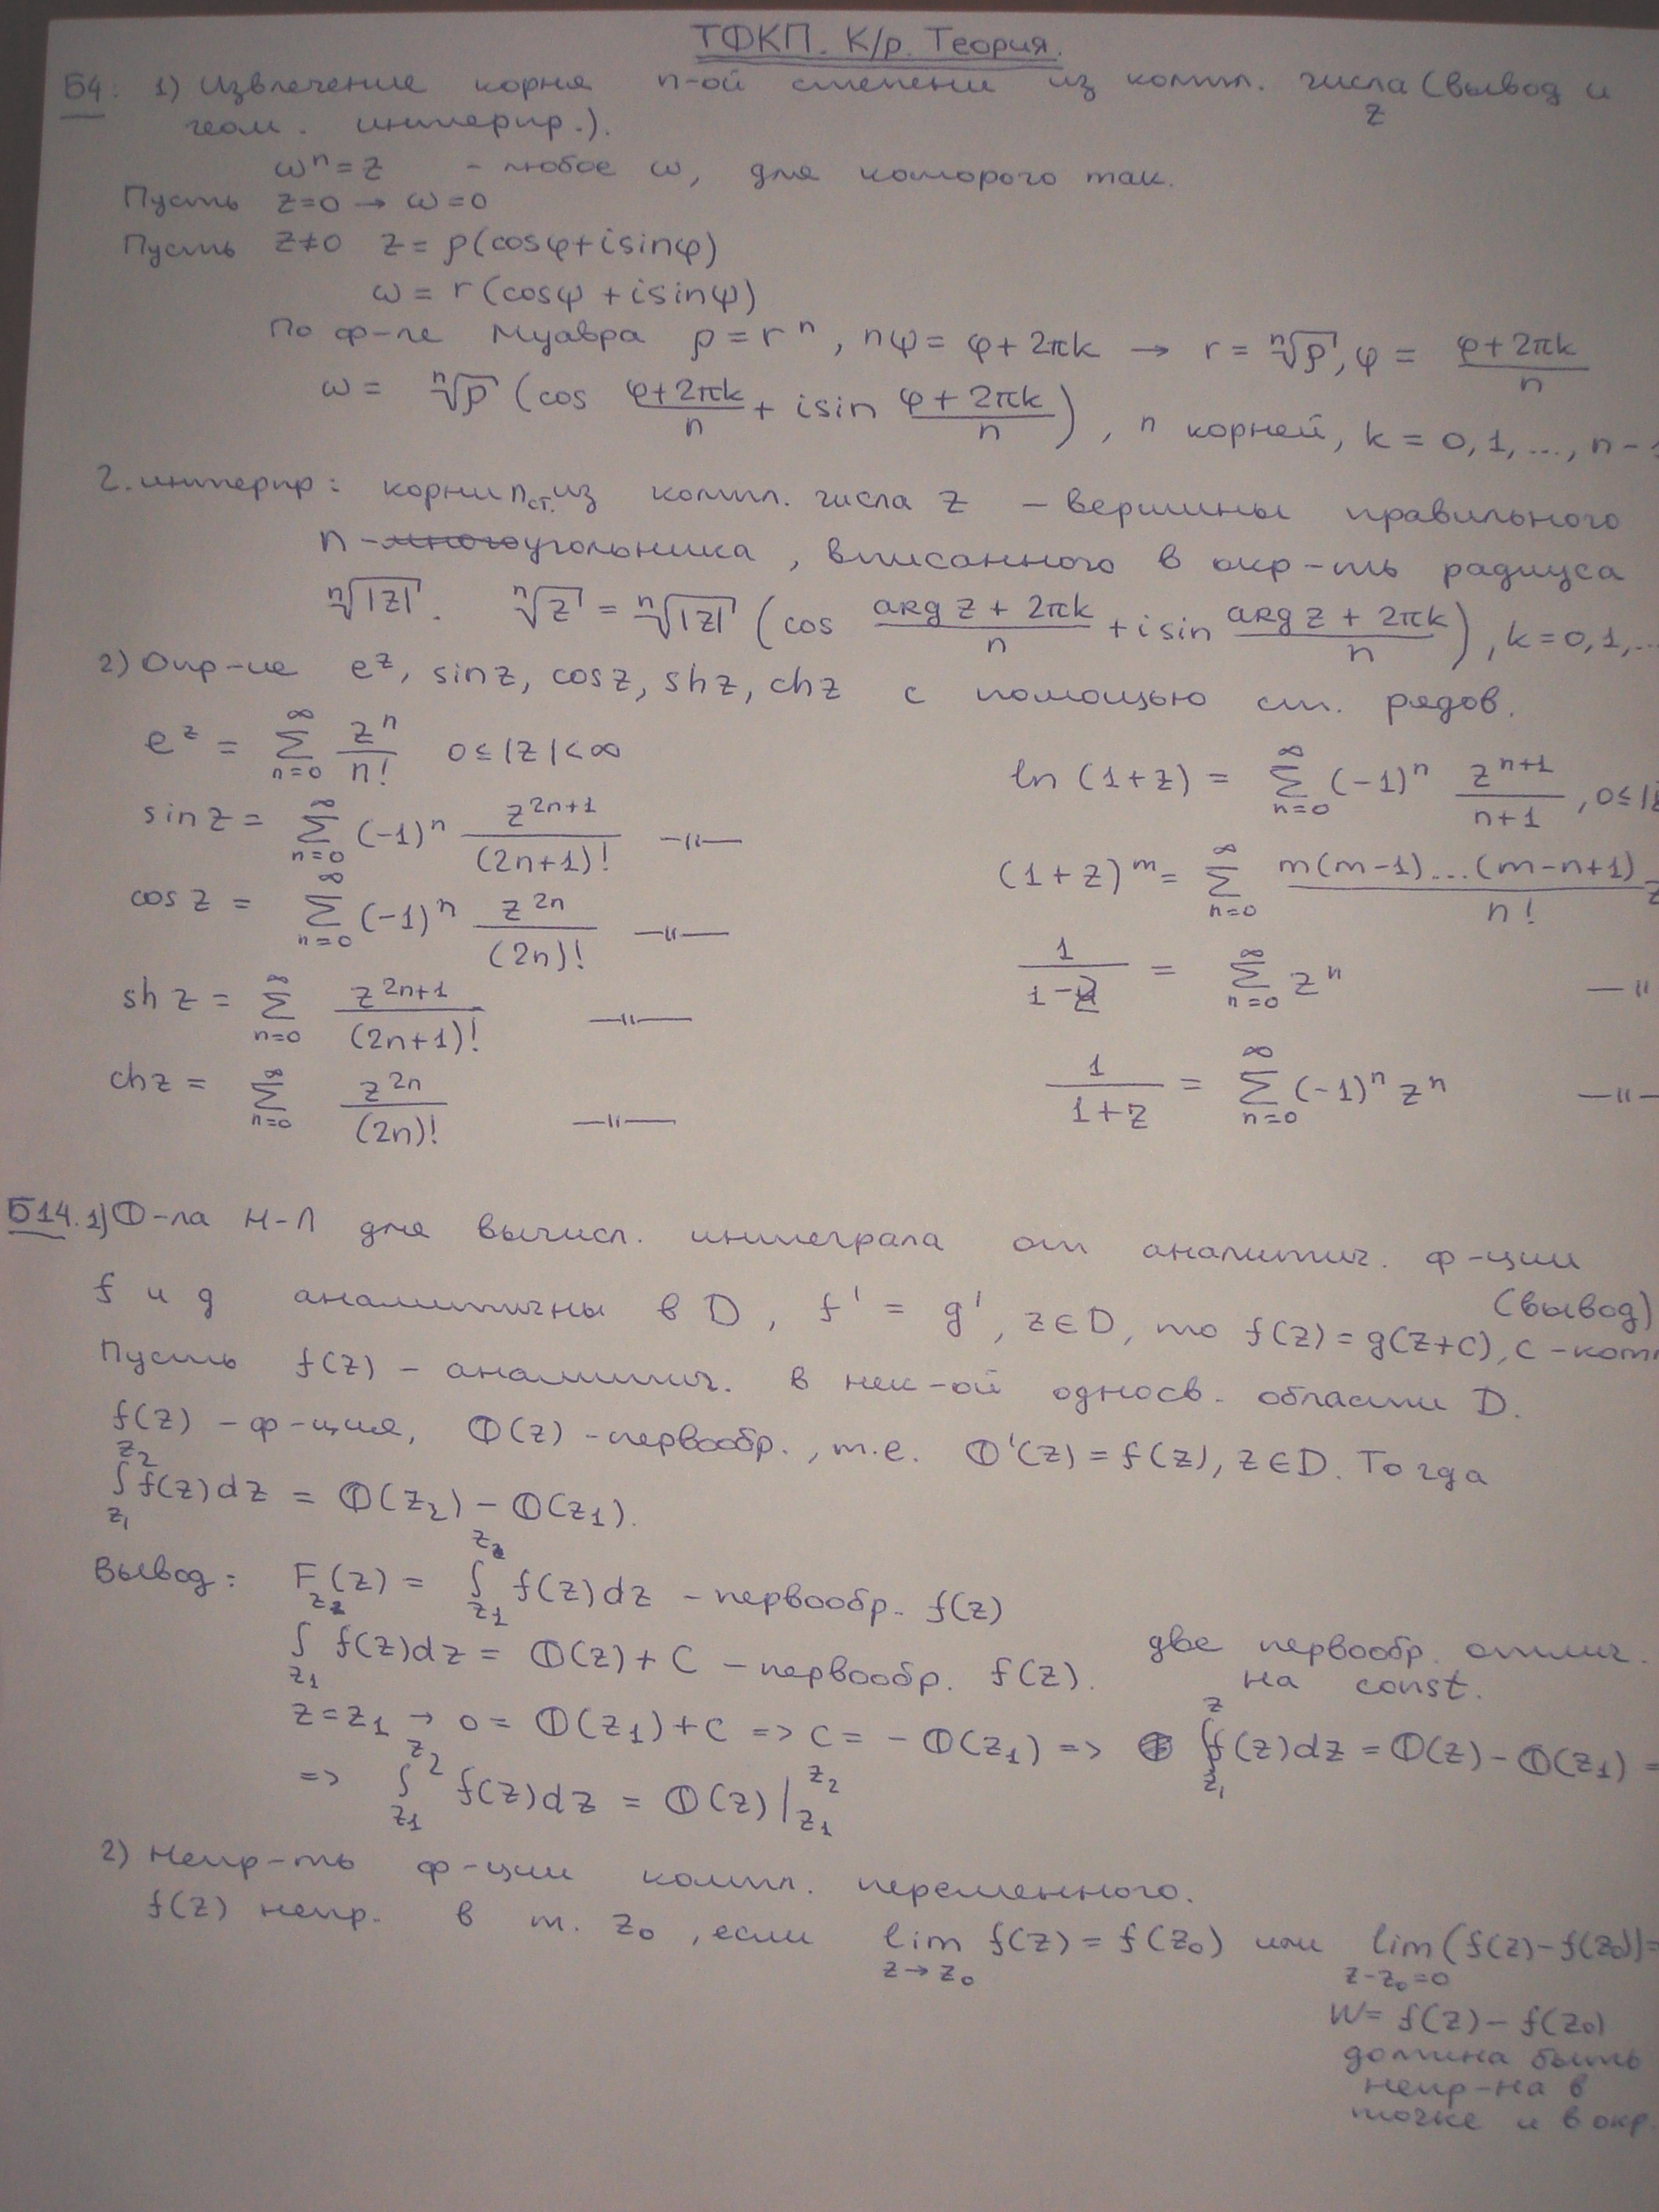 ТФКП. К/р. Теория.
Б4: 1) Извлечение корня n-ой степени из компл. числа (вывод и
z
геом. интерпр.).
ωⁿ = z - любое ω, для которого так.
Пусть z=0 → ω=0
Пусть z≠0 z = ρ(cosφ+isinφ)
ω = r(cosψ + isinψ)
По ф-ле Муавра ρ = rⁿ, nψ = φ + 2πk → r = ⁿ√ρ, φ = (φ+2πk)/n
ω = ⁿ√ρ (cos (φ+2πk)/n + isin (φ+2πk)/n), n корней, k = 0,1,..., n-1
Г. интерпр: корни n ст. из компл. числа z - вершины правильного
n-многоугольника, вписанного в окр-ть радиуса
ⁿ√|z|. ⁿ√z = ⁿ√|z| (cos (arg z + 2πk)/n + isin (arg z + 2πk)/n), k=0,1,...
2) Опр-ие e^z, sinz, cosz, shz, chz с помощью ст. рядов.
e^z = ∑_{n=0}^{∞} zⁿ/n! 0≤|z|<∞
ln(1+z) = ∑_{n=0}^{∞} (-1)ⁿ z^{n+1}/(n+1), 0≤|z
sinz = ∑_{n=0}^{∞} (-1)ⁿ z^{2n+1}/(2n+1)! —"—
(1+z)^m = ∑_{n=0}^{∞} m(m-1)...(m-n+1)/n! z
cosz = ∑_{n=0}^{∞} (-1)ⁿ z^{2n}/(2n)! —"—
1/(1-z) = ∑_{n=0}^{∞} zⁿ —"
shz = ∑_{n=0}^{∞} z^{2n+1}/(2n+1)! —"—
1/(1+z) = ∑_{n=0}^{∞} (-1)ⁿ zⁿ —"—
chz = ∑_{n=0}^{∞} z^{2n}/(2n)! —"—
Б14. 1) Ф-ла Н-Л для вычисл. интеграла от аналитич. ф-ции
(вывод)
f и g аналитичны в D, f' = g', z∈D, то f(z) = g(z+c), c - комп
Пусть f(z) - аналитич. в нек-ой односв. области D.
f(z) - ф-ция, Ф(z) - первообр., т.е. Ф'(z) = f(z), z∈D. Тогда
∫_{z₁}^{z₂} f(z)dz = Ф(z₂) - Ф(z₁).
Вывод: F(z) = ∫_{z₁}^{z} f(z)dz - первообр. f(z)
∫_{z₁}^{z} f(z)dz = Ф(z) + C - первообр. f(z). две первообр. отлич.
на const.
z=z₁ → 0 = Ф(z₁)+C => C = -Ф(z₁) => ∫_{z₁}^{z} f(z)dz = Ф(z) - Ф(z₁) =
=> ∫_{z₁}^{z₂} f(z)dz = Ф(z)|_{z₁}^{z₂}
2) Непр-ть ф-ции компл. переменного.
f(z) непр. в т. z₀, если lim_{z→z₀} f(z) = f(z₀) или lim_{z-z₀=0} (f(z)-f(z₀))=
W = f(z) - f(z₀)
должна быть
непр-на в
точке и в окр.